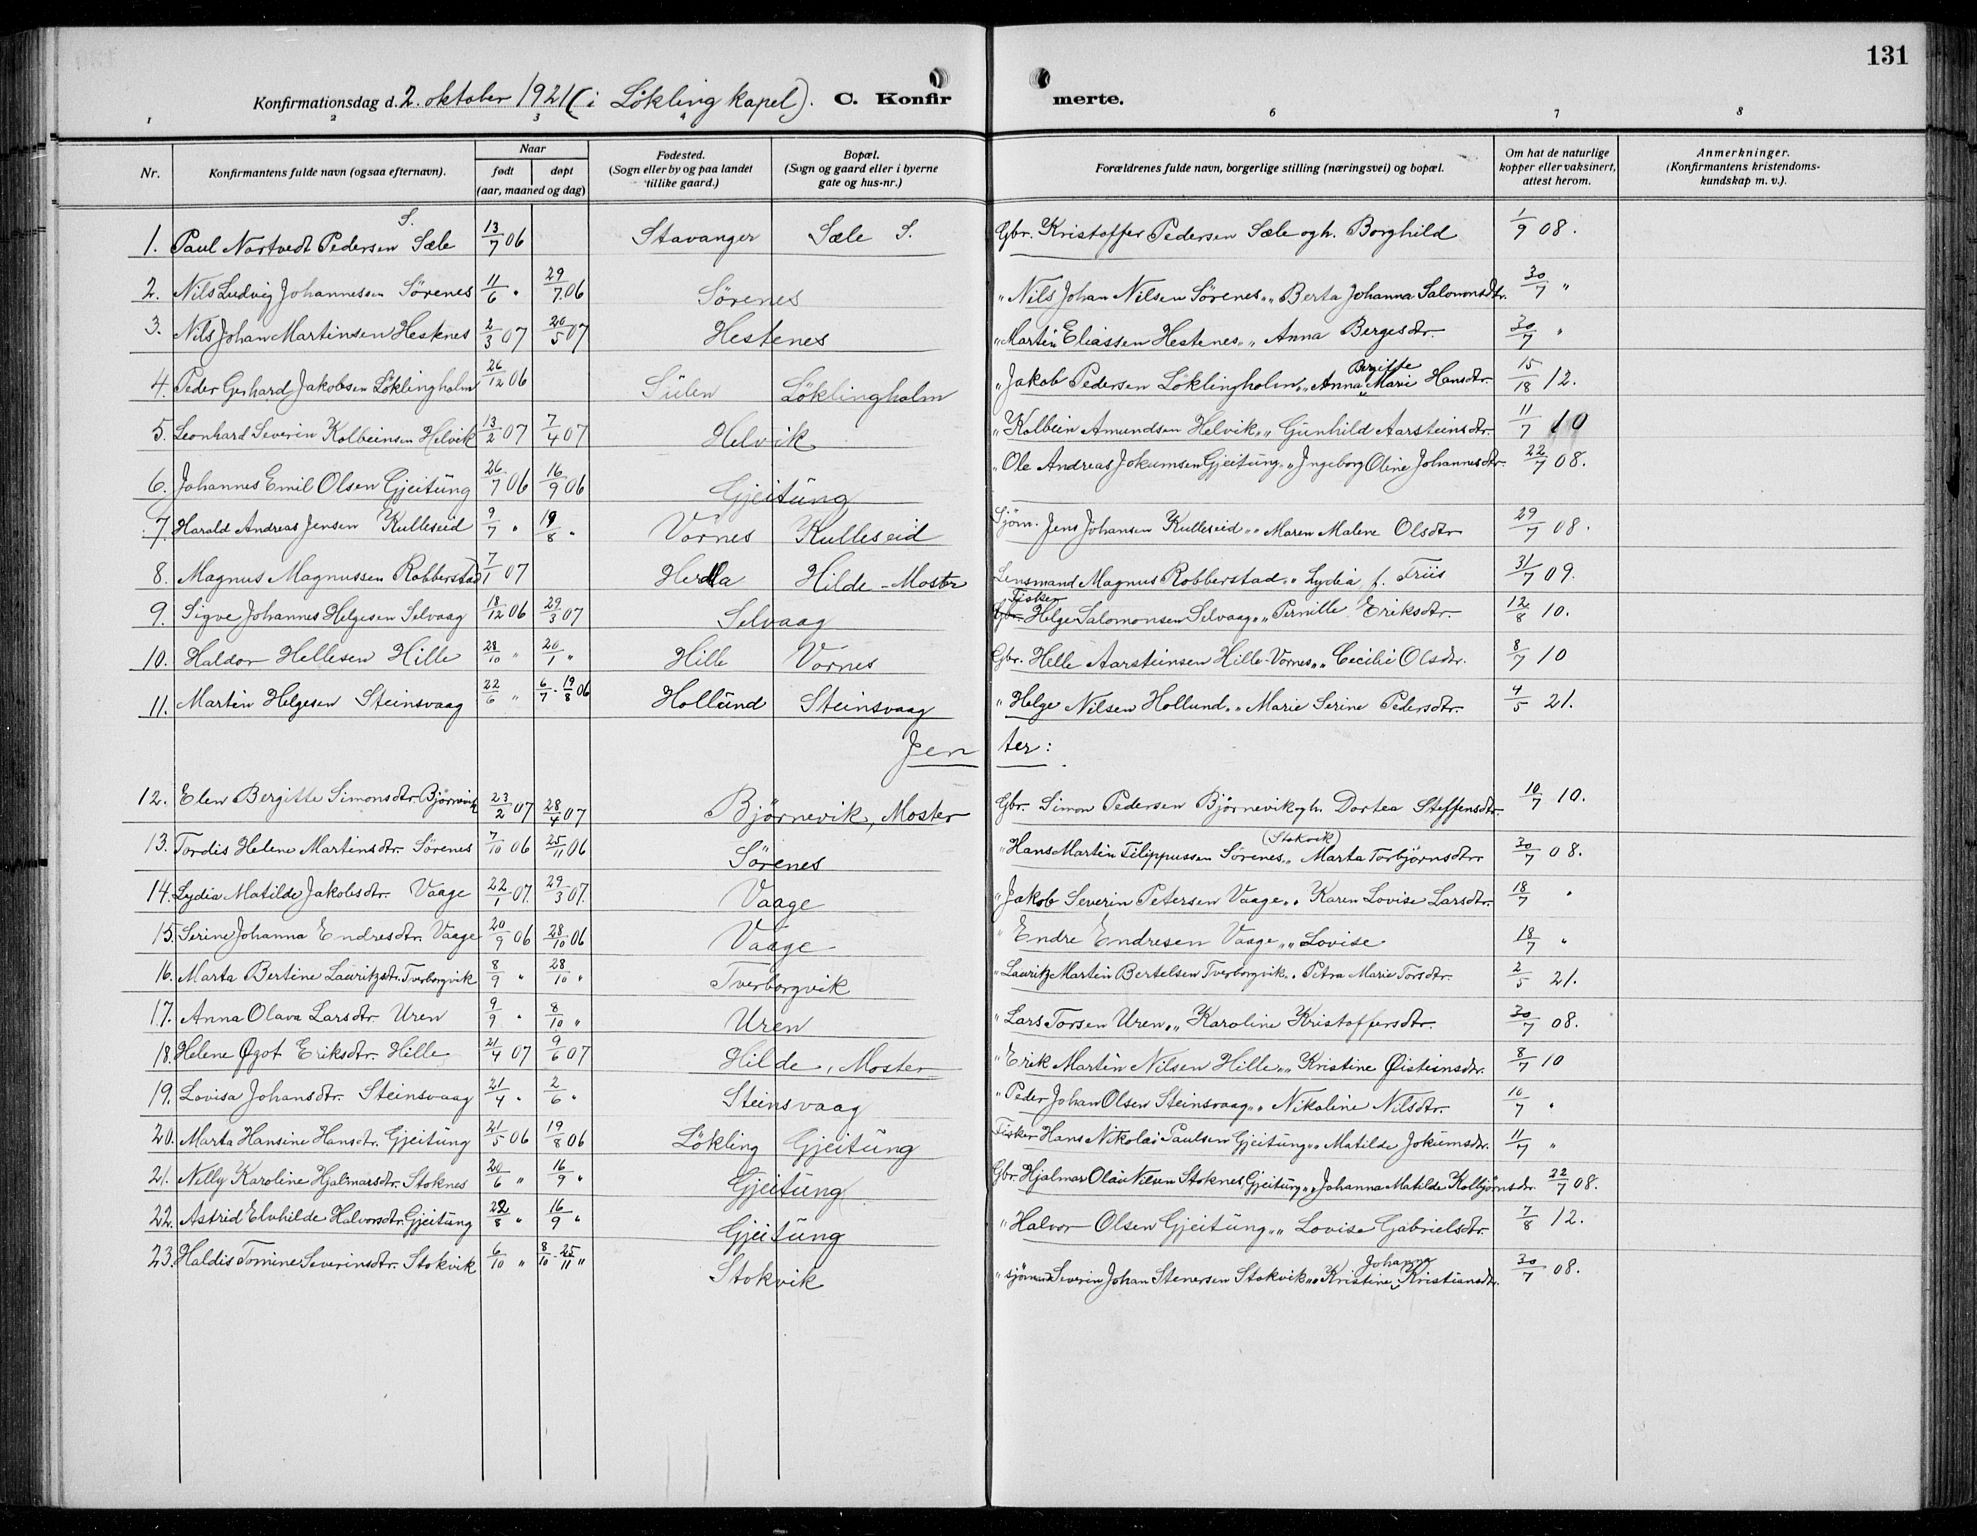 131
Konfirmationsdag d. 2. oktober 1921 (i Lökling kapel). C. Konfir merte.
1 2 3 4 6 7 8
Nr. Konfirmantens fulde navn (ogsaa efternavn). Naar født døpt (aar, maaned og dag) Fødested. (Sogn eller by og paa landet tillike gaard.) Bopæl. (Sogn og gaard eller i byerne gate og hus-nr.) Forældrenes fulde navn, borgerlige stilling (næringsvei) og bopæl. Om hat de naturlige kopper eller vaksinert, attest herom. Anmerkninger. (Konfirmantens kristendoms-kundskap m. v.).
1. Paul Nortvedt Pedersen Sæle S. 13/7 06 Stavanger Sæle S. Gbr. Kristoffer Pedersen Sæle og h. Borghild 1/9 08.
2. Nils Ludvig Johannessen Sörenes 11/6 " 29/7 06 Sörenes " Nils Johan Nilsen Sörenes " " Berta Johanna Salomonsdtr. 30/7 "
3. Nils Johan Martinsen Hestenes 2/3 07 20/5 07 Hestenes " Martin Eliassen Hestenes " " Anna Bergesdtr. 30/7 "
4. Peder Gerhard Jakobsen Löklingholm 26/12 06 Sülen Löklingholm " Jakob Pedersen Löklingholm " " Anna Bergitte Marie Hansdtr. 15/18 12.
5. Leonhard Severin Kolbeinsen Helvik 13/2 07 7/4 07 Helvik " Kolbein Amundsen Helvik " " Gunhild Aarsteinsdtr. 11/7 10
6. Johannes Emil Olsen Gjeitüng 26/7 06 16/9 06 Gjeitüng " Ole Andreas Jokumsen Gjeitung " " Ingeborg Oline Johannesdtr. 22/7 08.
7. Harald Andreas Jensen Kulleseid 9/7 " 19/8 " Vornes Kulleseid Sjöm. Jens Johansen Kulleseid " " Maren Malene Olsdtr 29/7 08.
8. Magnus Magnussen Robberstad 7/1 07 Herdla Hilde - Moster Lensmand Magnus Robberstad " " Lydia f. Friis 31/7 09.
9. Sigve Johannes Helgesen Selvaag 18/12 06 29/3 07 Selvaag Gbr. Fisker Helge Salomonsen Selvaag " " Pernille Eriksdtr. 12/8 10.
10. Haldor Hellesen Hille 28/10 " 20/1 " Hille Vornes Gbr. Helle Aarsteinsen Hille-Vornes " " Cecilie Olsdtr. 8/7 10
11. Martin Helgesen Steinsvaag 22/6 " 6/7 - 19/8 06 Hollünd Steinsvaag " Helge Nilsen Hollund " " Marie Serine Pedersdtr. 4/5 21.
Jen ter:
12. Elen Bergitte Simonsdtr. Björnevik 23/2 07 28/4 07 Björnevik, Moster Gbr. Simon Pedersen Björnevik og h. Dortea Steffensdtr. 10/7 10.
13. Tordis Helene Martinsdtr. Sörenes 7/10 06 25/11 06 Sörenes " Hans Martin Filippussen Sörenes (Stokvik) " " Marta Torbjörnsdtr. 30/7 08.
14. Lydia Matilde Jakobsdtr. Vaage 22/1 07. 29/3 07. Vaage " Jakob Severin Petersen Vaage " " Karen Lovise Larsdtr. 18/7 "
15. Serine Johanna Endresdtr. Vaage 20/9 06 28/10 06 Vaage " Endre Endresen Vaage " " Lovise 18/7 "
16. Marta Bertine Lauritzdtr. Tverborgvik 8/9 " 28/10 " Tverborgvik " Lauritz Martin Bertelsen Tverborgvik " " Petra Marie Torsdtr. 2/5 21.
17. Anna Olava Larsdtr. Uren 9/9 " 8/10 " Uren " Lars Torsen Uren " " Karoline Kristoffersdtr. 30/7 08.
18. Helene Ögot Eriksdtr. Hille 21/4 07 9/6 07 Hilde, Moster " Erik Martin Nilsen Hille " " Kristine Øisteinsdtr. 8/7 10
19. Lovisa Johansdtr. Steinsvaag 21/4 " 2/6 " Steinsvaag " Peder Johan Olsen Steinsvaag " " Nikoline Nilsdtr. 10/7 "
20. Marta Hansine Hansdtr. Gjeitüng 21/5 06 19/8 06 Lökling Gjeitüng Fisker Hans Nikolai Paulsen Gjeitung " " Matilde Jokumsdtr. 11/7 "
21. Nelly Karoline Hjalmarsdtr. Stoknes 20/6 " 16/9 " Gjeitüng Gbr. Hjalmar Olai Nilsen Stoknes, Gjeitung " " Johanna Matilde Kolbjörnsdtr. 22/7 08.
22. Astrid Elvhilde Halvorsdtr. Gjeitüng 22/8 " 16/9 " Gjeitüng " Halvor Olsen Gjeitüng " " Lovise Gabrielsdtr. 7/8 12.
23. Haldis Tomine Severinsdtr. Stokvik 6/10 " 8/10 - 25/11 " Stokvik " sjömand Severin Johan Stenersen Stokvik " " Kristine Johanna Kristiansdtr. 30/7 08.